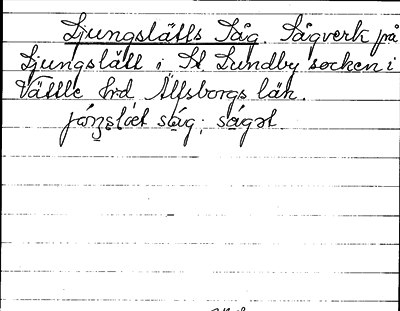 Ljungslätts Såg. Sågverk på
Ljungslätt i St. Lundby socken i
Vättle hrd Älfsborgs län.
såg; ságət.